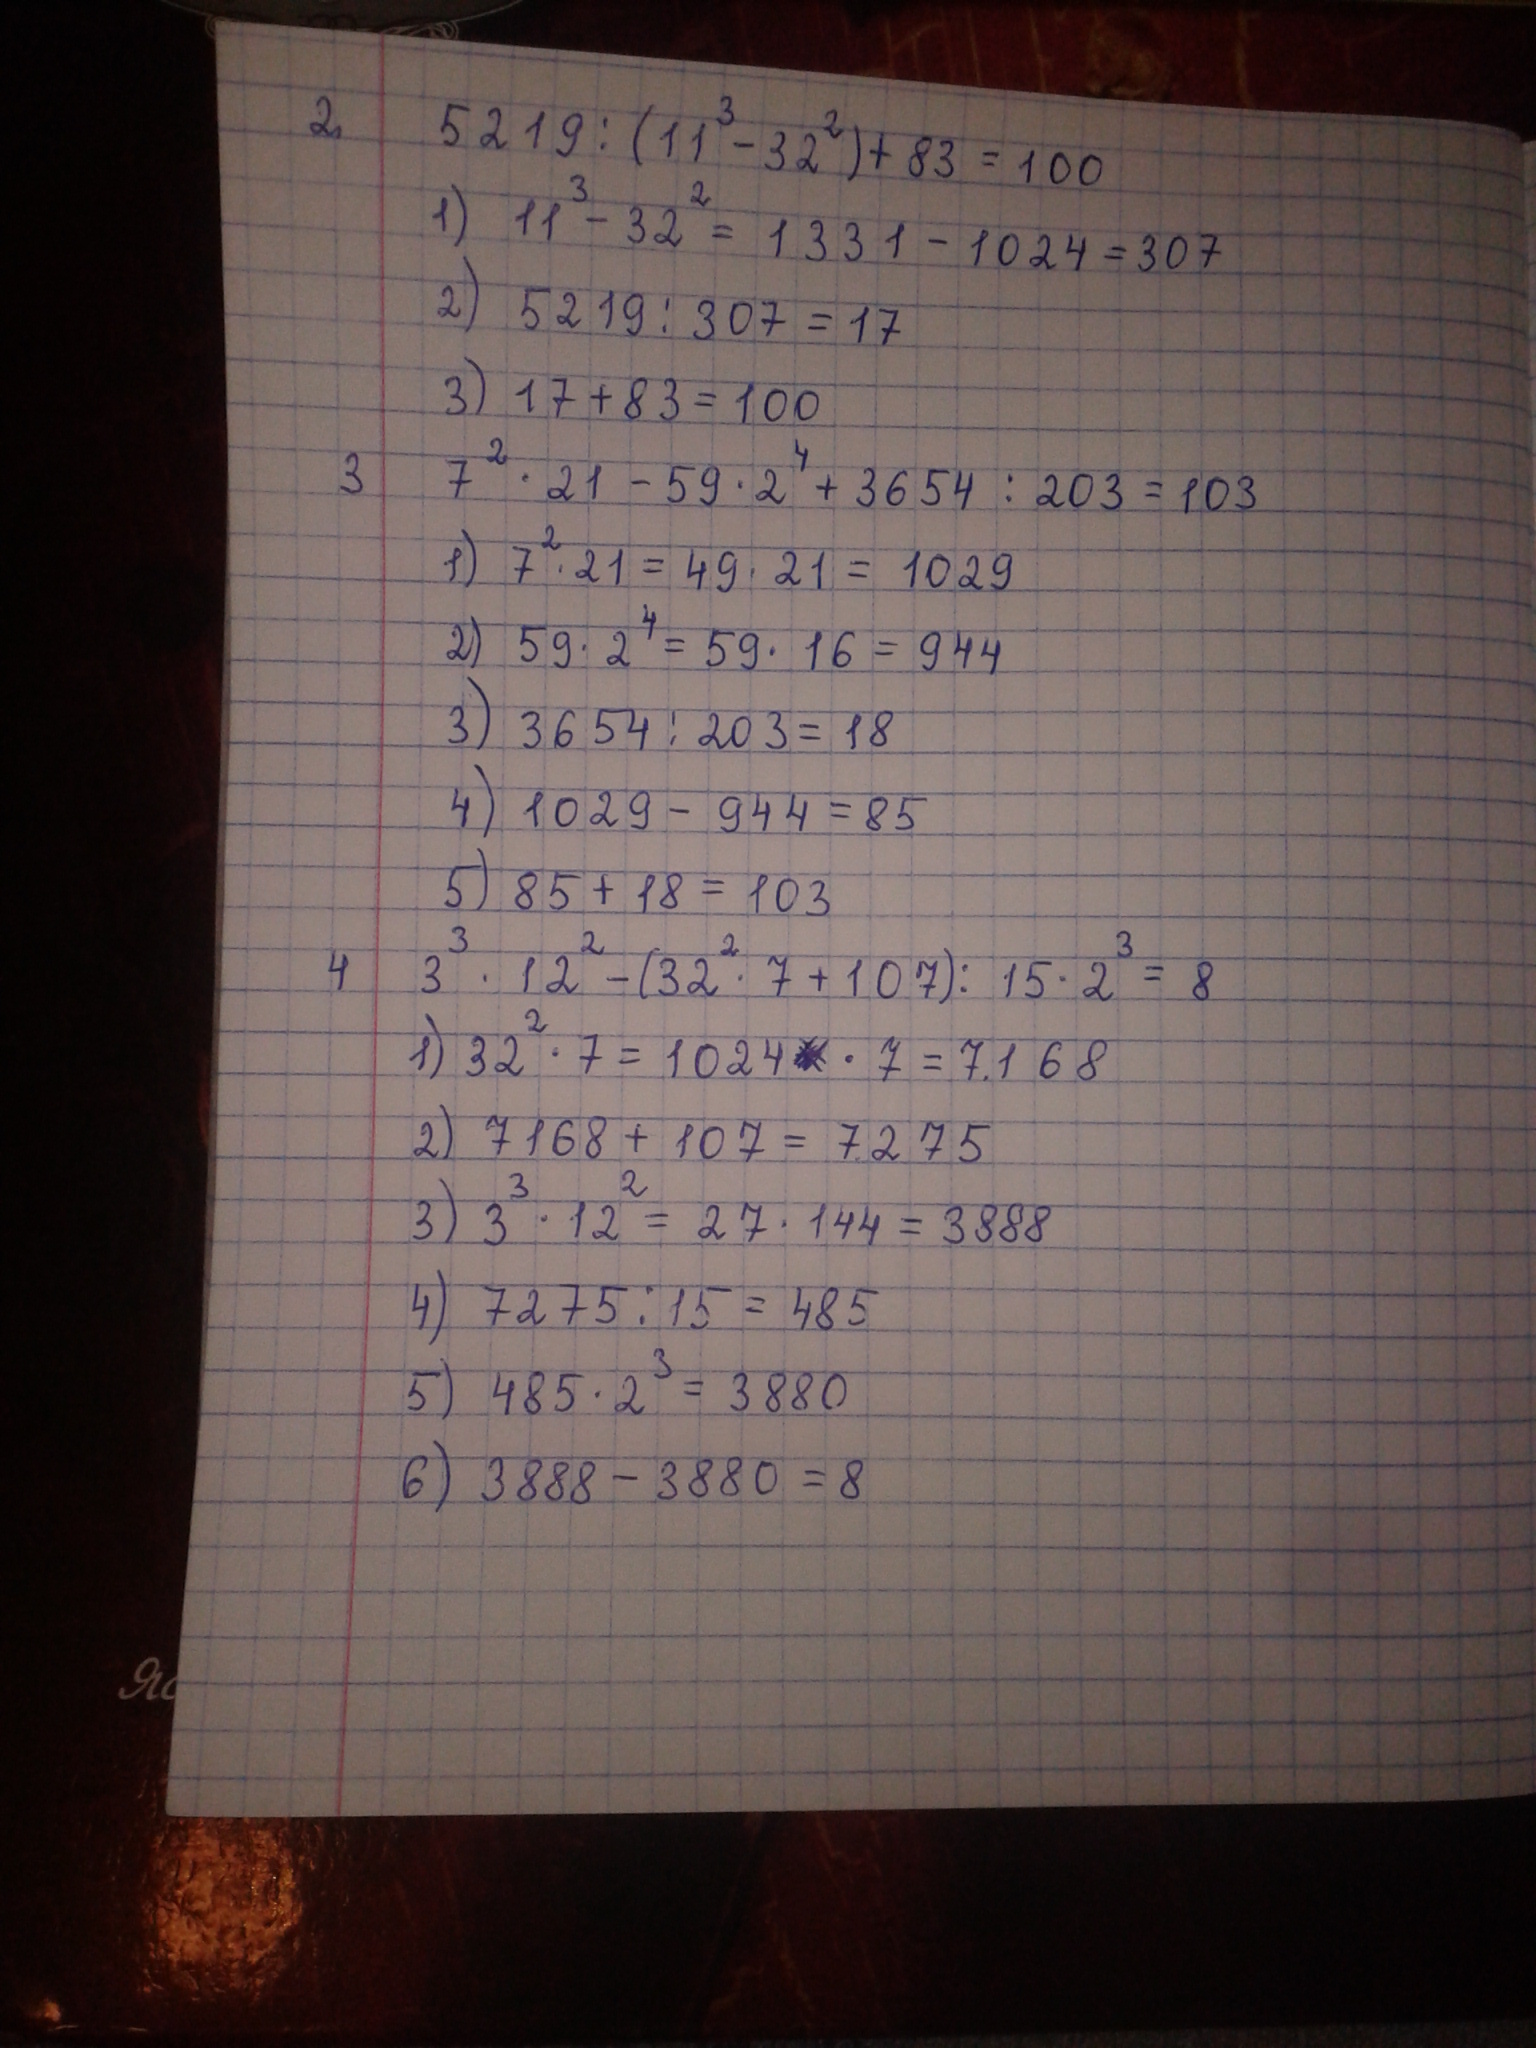 2. 5219 : (11³ - 32²) + 83 = 100
1) 11³ - 32² = 1331 - 1024 = 307
2) 5219 : 307 = 17
3) 17 + 83 = 100
3 7² · 21 - 59 · 2⁴ + 3654 : 203 = 103
1) 7² · 21 = 49 · 21 = 1029
2) 59 · 2⁴ = 59 · 16 = 944
3) 3654 : 203 = 18
4) 1029 - 944 = 85
5) 85 + 18 = 103
4 3³ · 12² - (32² · 7 + 107) : 15 · 2³ = 8
1) 32² · 7 = 1024 · 7 = 7.168
2) 7168 + 107 = 7.275
3) 3³ · 12² = 27 · 144 = 3888
4) 7275 : 15 = 485
5) 485 · 2³ = 3880
6) 3888 - 3880 = 8